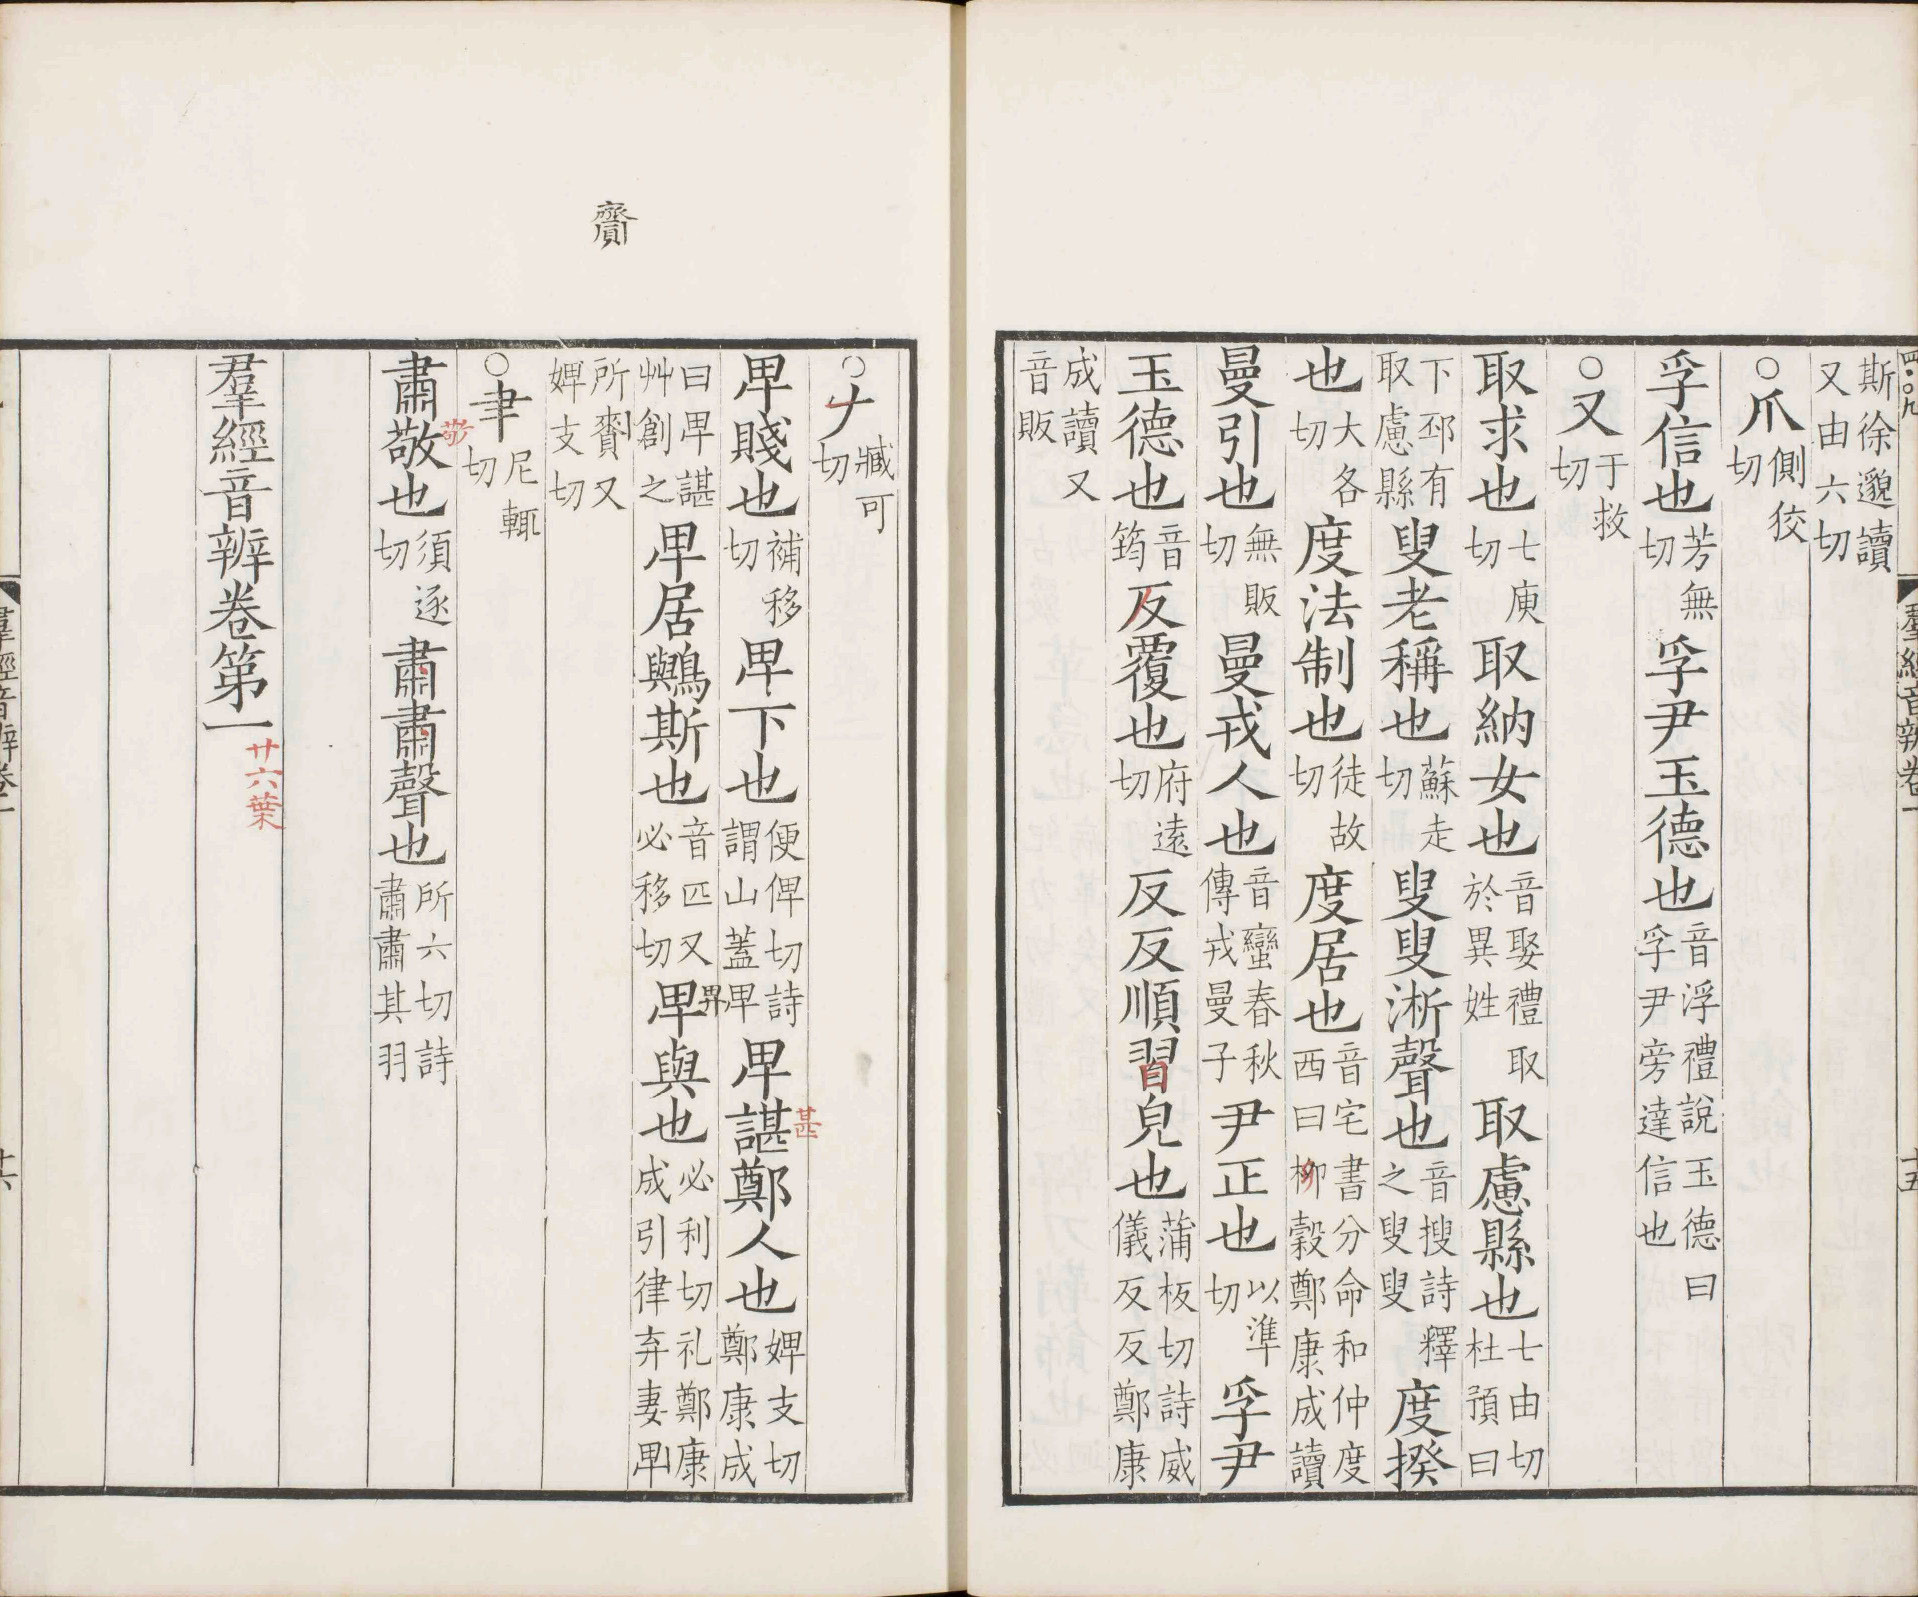 四•九
羣經音辨卷一
十五
斯徐邈讀又由六切
○爪側狡切
孚信也芳無切孚尹玉德也音浮禮說玉德曰孚尹旁達信也
○又于救切
取求也七庾切取納女也音娶禮取於異姓取慮縣也七由切杜預曰
下邳有取慮縣叟老稱也蘇走切叟叟淅聲也音搜詩釋之叟叟度揆
也大各切度法制也徒故切度居也音宅書分命和仲度西曰柳穀鄭康成讀
曼引也無販切曼戎人也音蠻春秋傳戎曼子尹正也以準切孚尹
玉德也音筠反覆也府遠切反反順習皃也蒲板切詩威儀反反鄭康
成讀又音販
○𠂇臧可切
卑賤也補移切卑下也便俾切詩謂山蓋卑卑諶鄭人也婢支切鄭康成
甚
曰卑諶艸創之卑居鸒斯也音匹又必移切卑與也必利切礼鄭康成引律弃妻卑
畀
所賷又婢支切
齎
○聿尼輒切
肅敬也須逐切肅肅聲也所六切詩肅肅其羽
敬
羣經音辨卷第一
廿六葉
羣經音辨卷一
十六